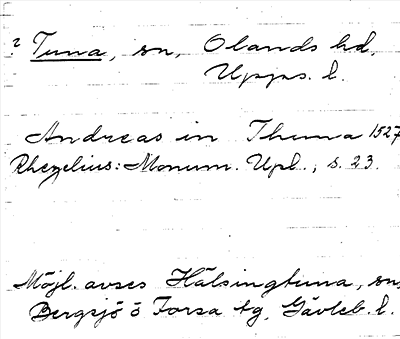 ? Tuna, sn, Olands hd,
Upps. l.
Andreas in Thuna 1527
Rhezelius: Monum. Upl., s. 23.
Möjl. avses Hälsingtuna, sn,
Bergsjö o Forsa tg, Gävleb. l.